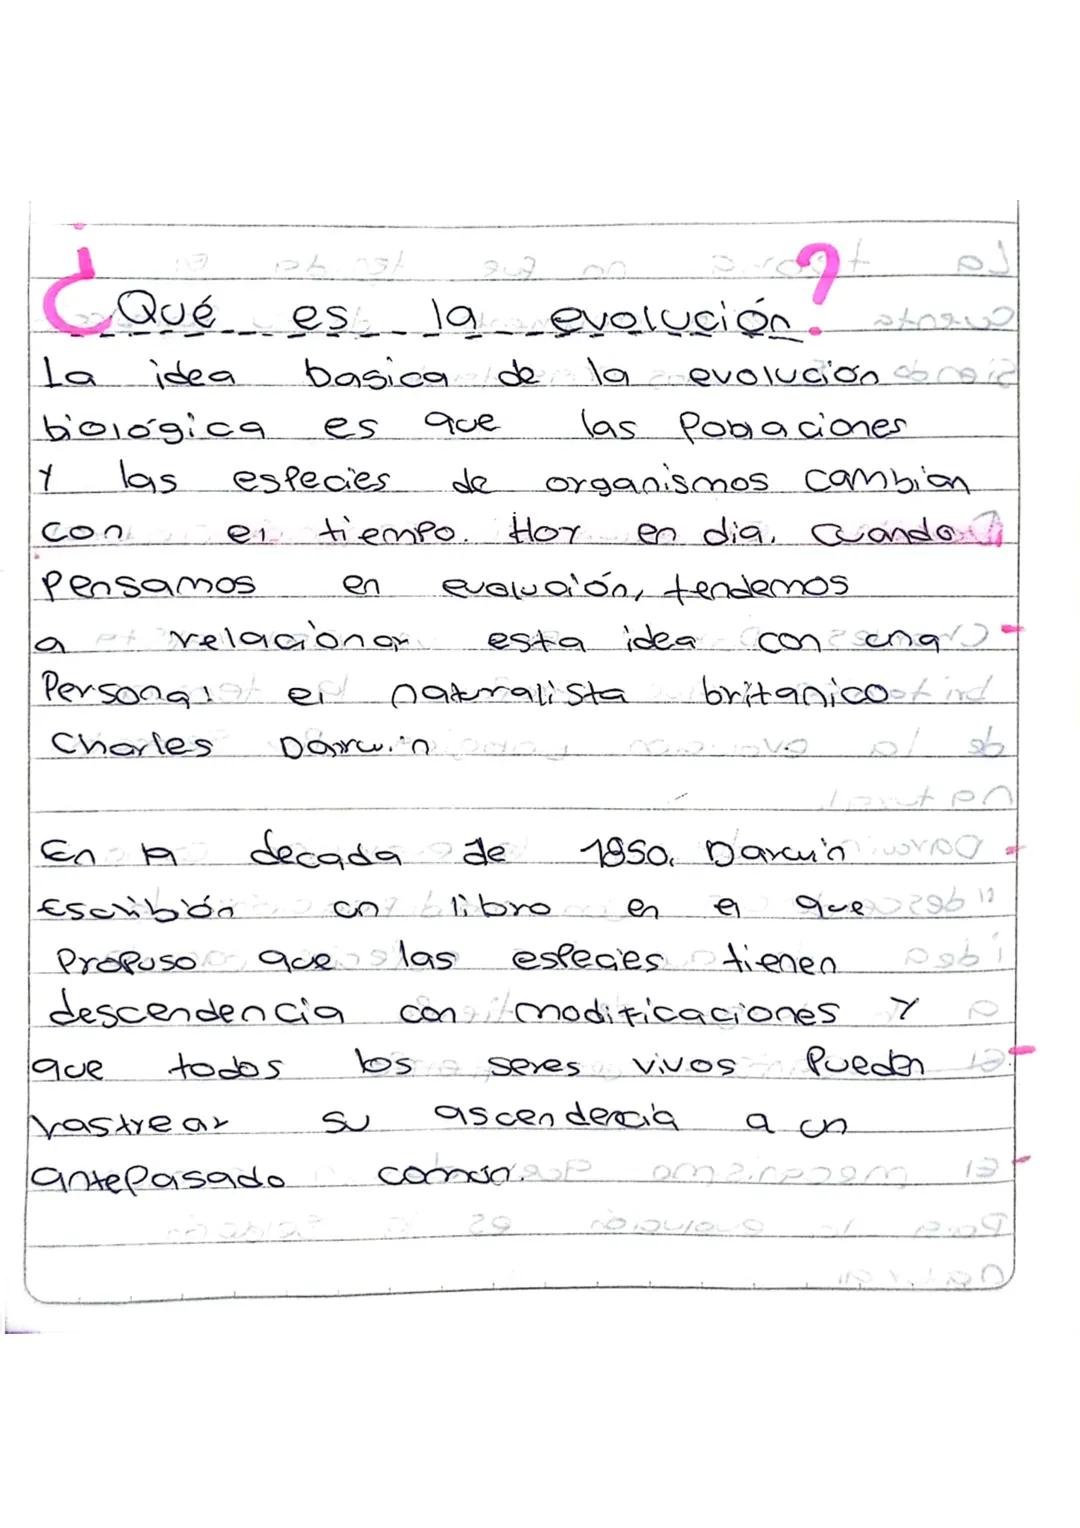 ¿Qué es la evolución?
La idea basica de la evolución
biológica es que las Poblaciones
Y las especies de organismos cambian
con el tiempo. Hoy en dia, cuando
Pensamos en evolución, tendemos
a relacionar esta idea con una
Persona: el naturalista britanico
Charles Darwin
En la decada de 1850, Darwin
Escribión un libro en el que
Propuso que las especies tienen
descendencia con modificaciones Y
que todos los seres vivos Pueden
rastrear su ascendencia a un
antepasado común.